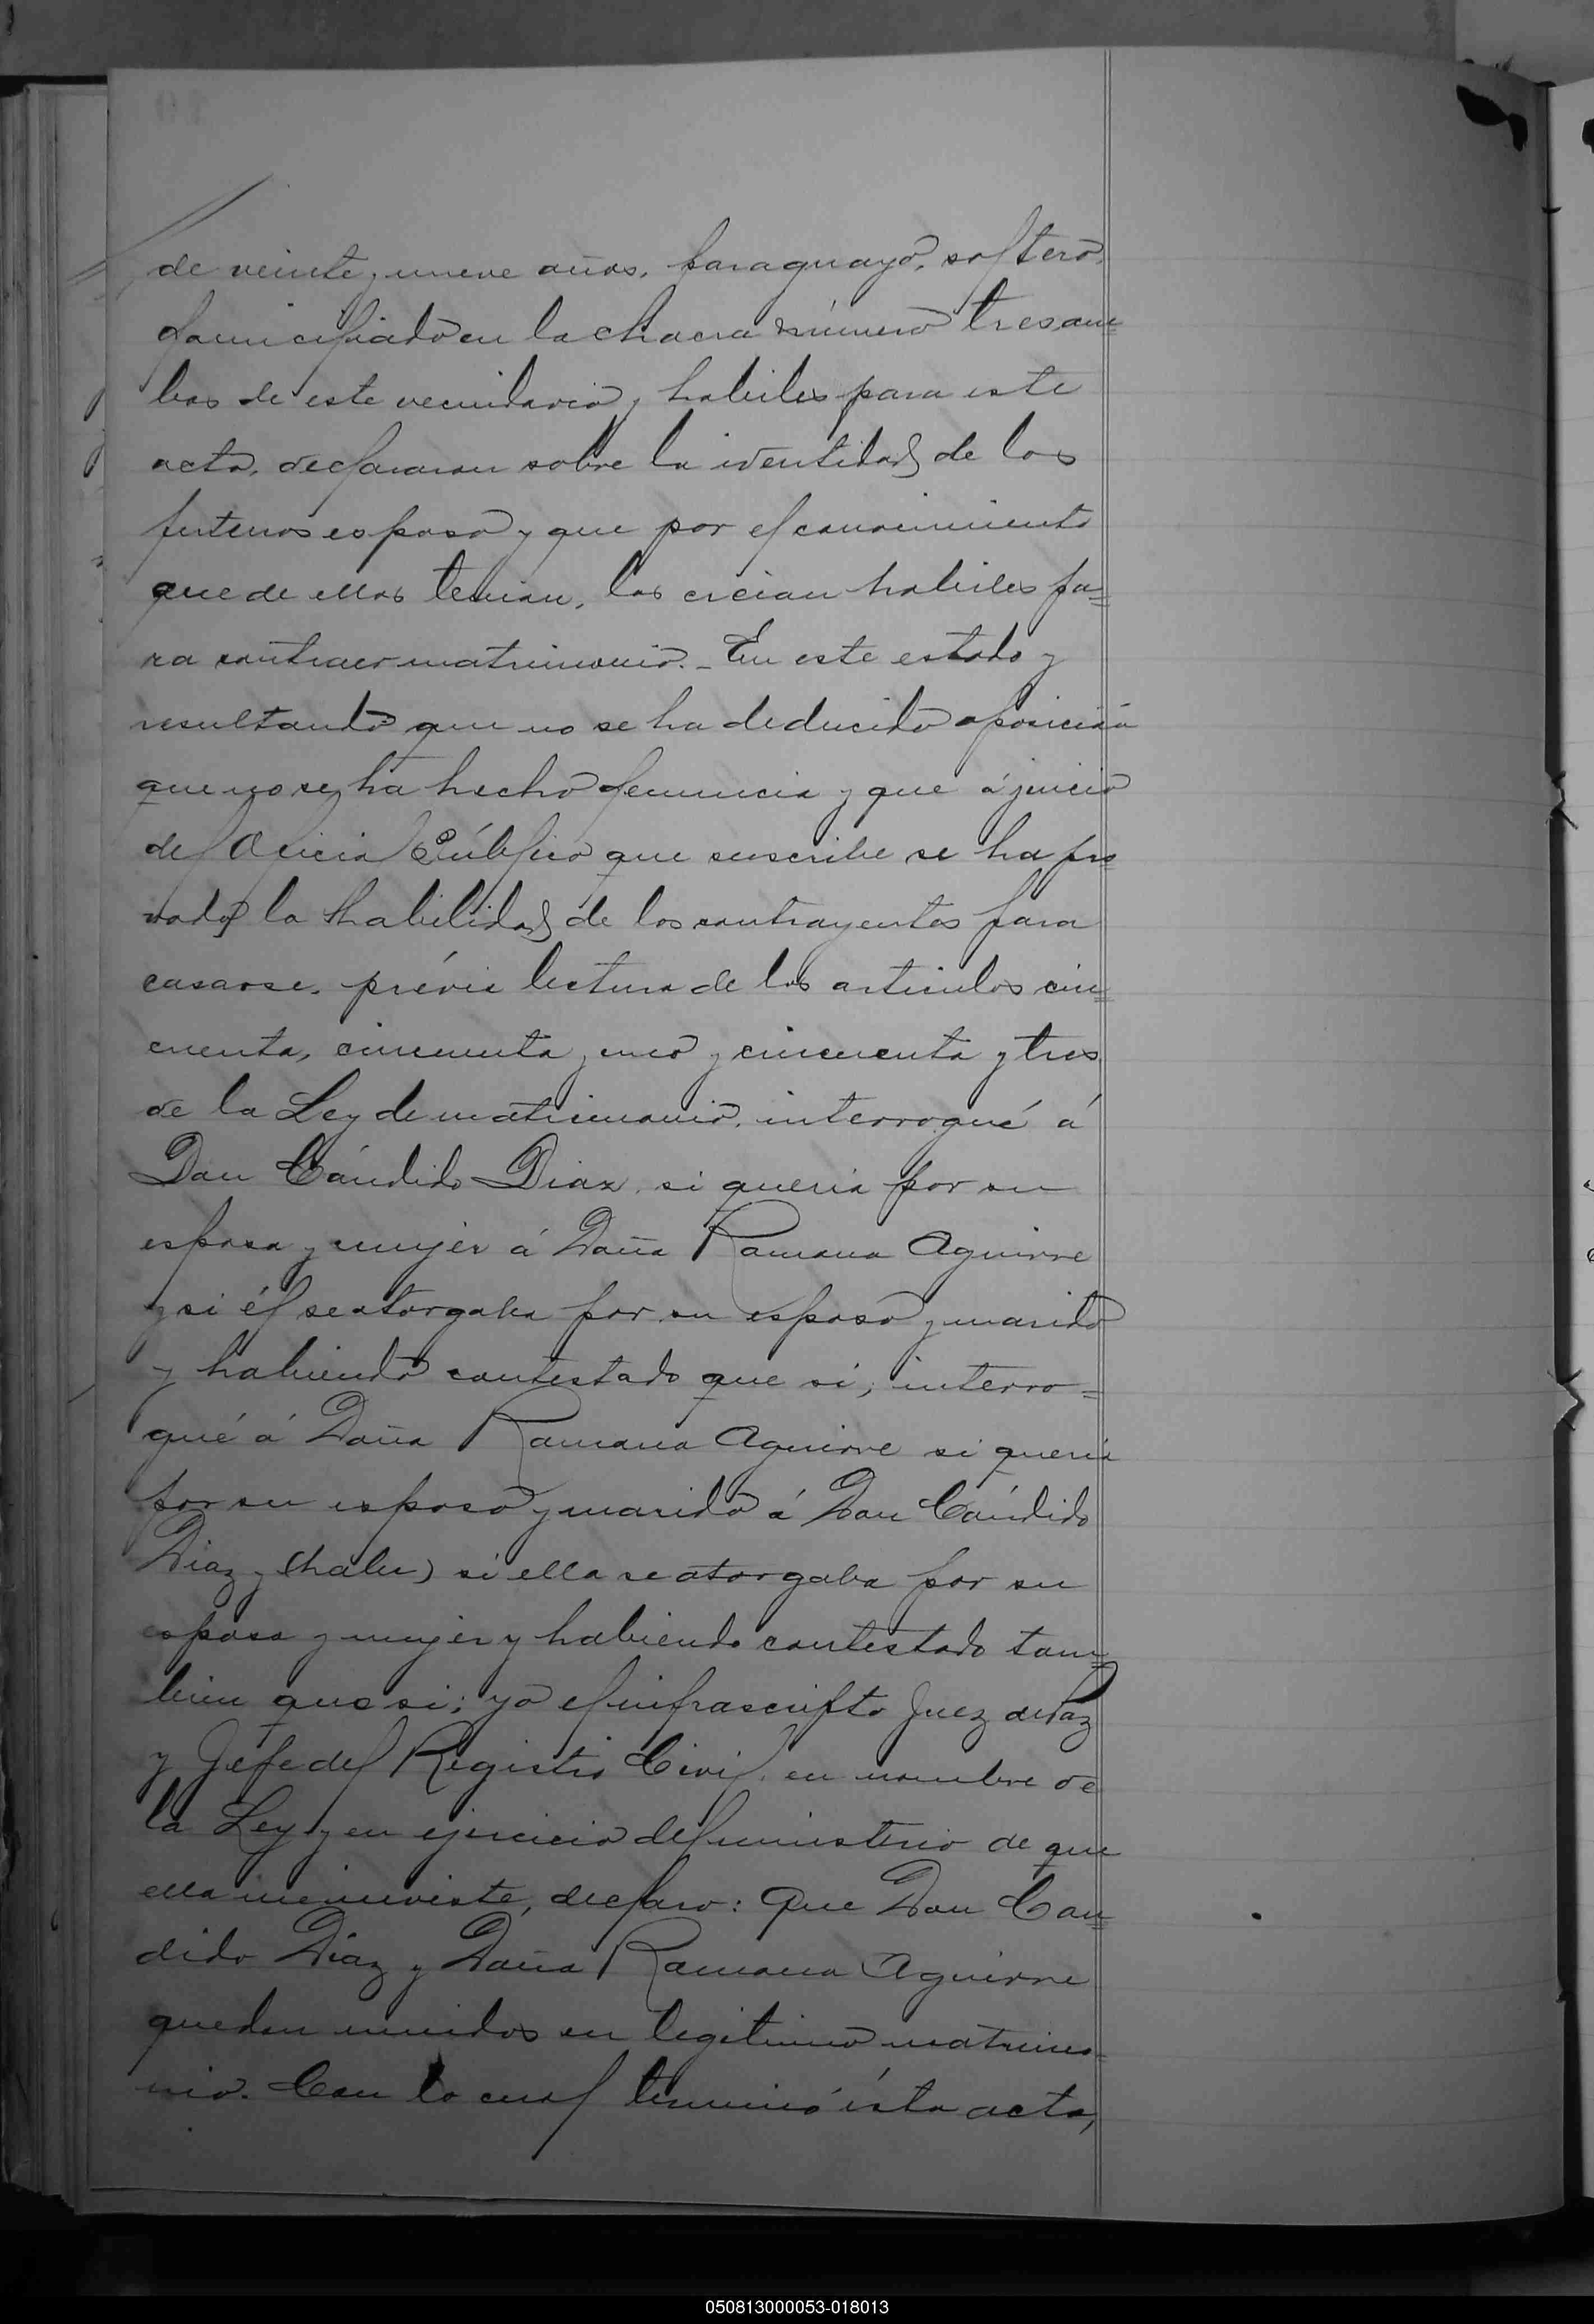 de veinte y nueve años, paraguayo, soltero,
domiciliado en la chacra número tres am=
bos de este vecindario y habiles para este
acto, declararon sobre la identidad de los
futuros esposo y que por el conocimiento
que de ellos tenian, los creian habiles pa=
ra contraer matrimonio. _ En este estado y
resultando que no se ha deducido oposición
que no se ha hecho denuncia y que á juicio
del Oficial Público que suscribe se ha pro=
vado la habilidad de los contrayentes para
casarse, prévia lectura de los articulos cin=
cuenta, cincuenta y uno y cincuenta y tres
de la Ley de matrimonio, interrogué á
Don Cándido Diaz, si queria por su
esposa y mujer á Doña Ramona Aguirre
y si él se otorgaba por su esposo y marido
y habiendo contestado que si; interro=
gué á Doña Ramona Aguirre si queria
por su esposo y marido á Don Cándido
Diaz y (habie) si ella se otorgaba por su
esposa y mujer y habiendo contestado tam=
bien que si; yo el infrascripto Juez de Paz
y Jefe del Registro Civil, en nombre de
la Ley y en ejercicio del ministerio de que
ella me inviste, declaro: Que Don Can=
dido Diaz y Doña Ramona Aguirre
quedan unidos en legitimo matrimo=
nio. Con lo cual terminó ésta acta,
050813000053-018013